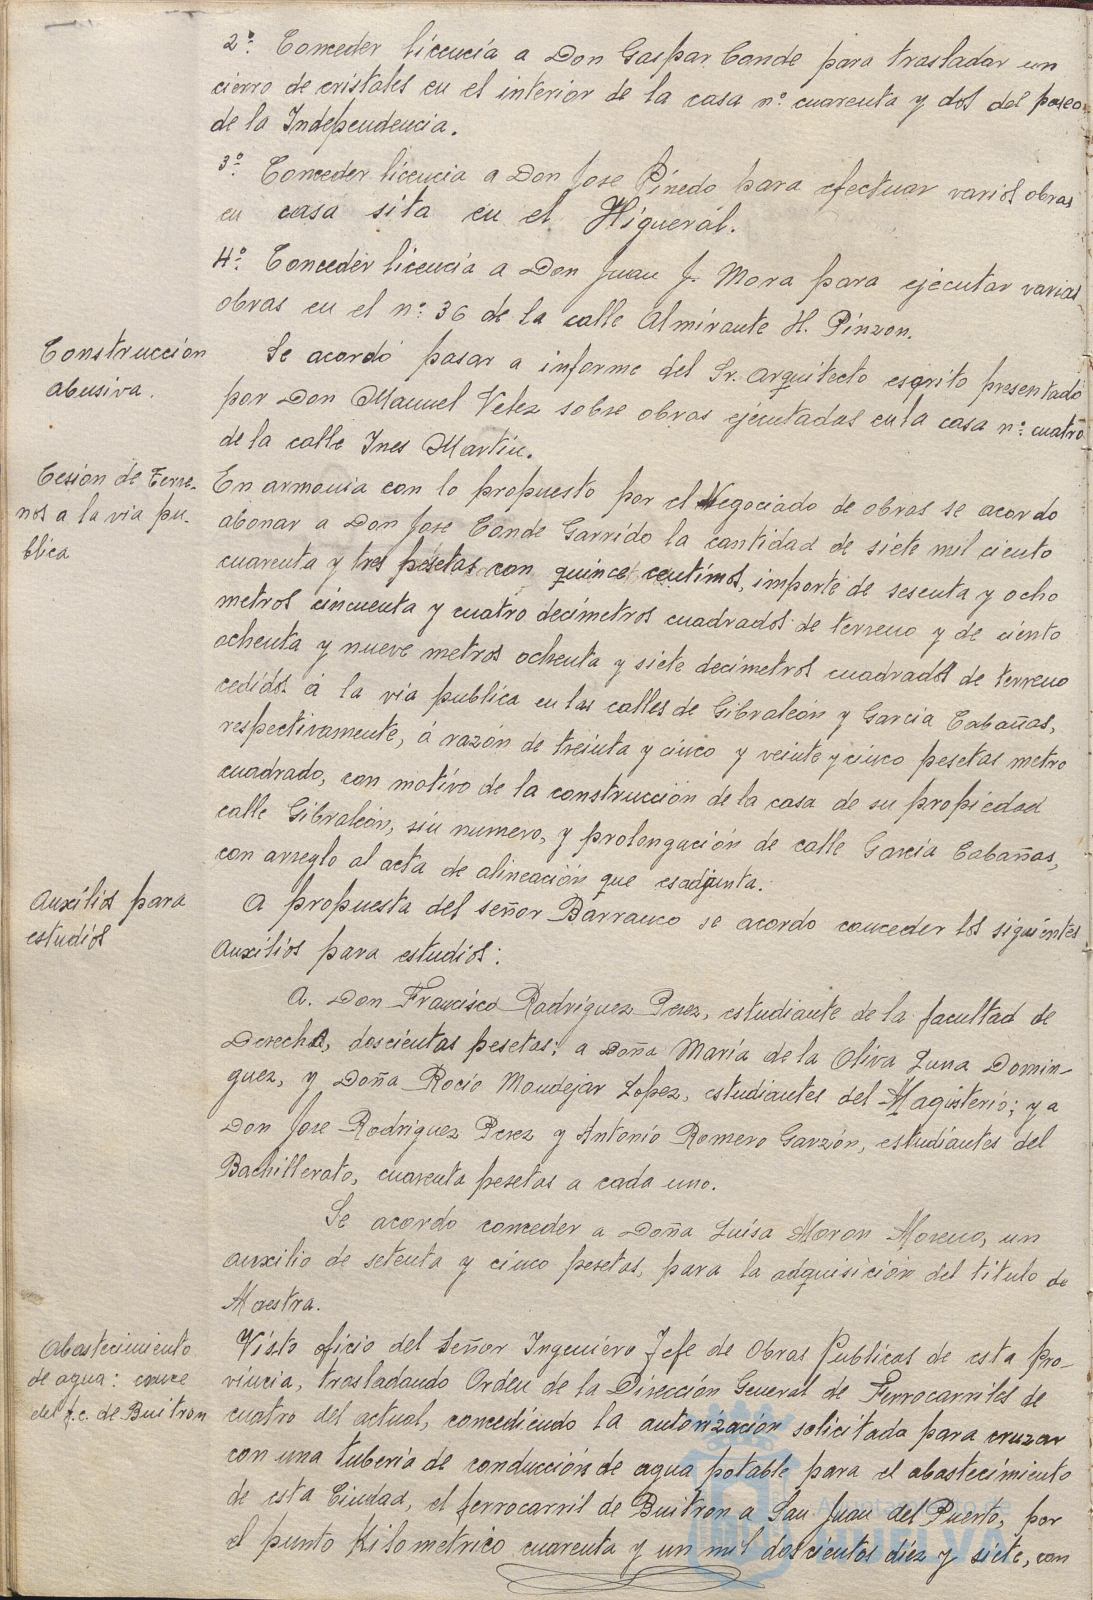 2º. Conceder licencia a Don Gaspar Conde para trasladar un
cierro de cristales en el interior de la casa nº. cuarenta y dos del paseo
de la Independencia.
3º. Conceder licencia a Don Jose Pinedo para efectuar varios obras
en casa sita en el Higueral.
4º. Conceder licencia a Don Juan J. Mora para ejecutar varias
obras en el nº. 36 de la calle Almirante H. Pinzon.
Construccion
abusiva.
Se acordó pasar a informe del Sr. Arquitecto escrito presentado
por Don Manuel Velez sobre obras ejecutadas en la casa nº. cuatro
de la calle Ines Martin.
Cesion de Terre-
nos a la via pu-
blica
En armonia con lo propuesto por el Negociado de obras se acordo
abonar a Don Jose Conde Garrido la cantidad de siete mil ciento
cuarenta y tres pesetas con quince centimos, importe de sesenta y ocho
metros cincuenta y cuatro decímetros cuadrados de terreno y de ciento
ochenta y nueve metros ochenta y siete decimetros cuadrados de terreno
cedidos á la via publica en las calles de Gibraleón y Garcia Cabañas,
respectivamente, á razón de treinta y cinco y veinte y cinco pesetas metro
cuadrado, con motivo de la construcción de la casa de su propiedad
calle Gibraleón, sin numero, y prolongación de calle Garcia Cabañas,
con arreglo al acta de alineación que es adjunta.
Auxilios para
estudios
A propuesta del señor Barranco se acordo conceder los siguientes
auxilios para estudios:
A. Don Francisco Rodriguez Perez, estudiante de la facultad de
Derecho, doscientas pesetas; a Doña Maria de la Oliva Luna Domin-
guez, y Doña Rocio Mondejar Lopez, estudiantes del Magisterio; y a
Don Jose Rodriguez Perez y Antonio Romero Garzón, estudiantes del
Bachillerato, cuarenta pesetas a cada uno.
Se acordo conceder a Doña Luisa Moron Moreno, un
auxilio de setenta y cinco pesetas, para la adquisicion del titulo de
Maestra.
Abastecimiento
de agua: cruce
del f.c. de Buitron
Visto oficio del Señor Ingeniero Jefe de Obras Publicas de esta pro-
vincia, trasladando Orden de la Dirección General de Ferrocarriles de
cuatro del actual, concediendo la autorización solicitada para cruzar
con una tubería de conducción de agua potable para el abastecimiento
de esta Ciudad, el ferrocarril de Buitron a San Juan del Puerto, por
el punto kilometrico cuarenta y un mil doscientos diez y siete, con
Ayuntamiento de
HUELVA